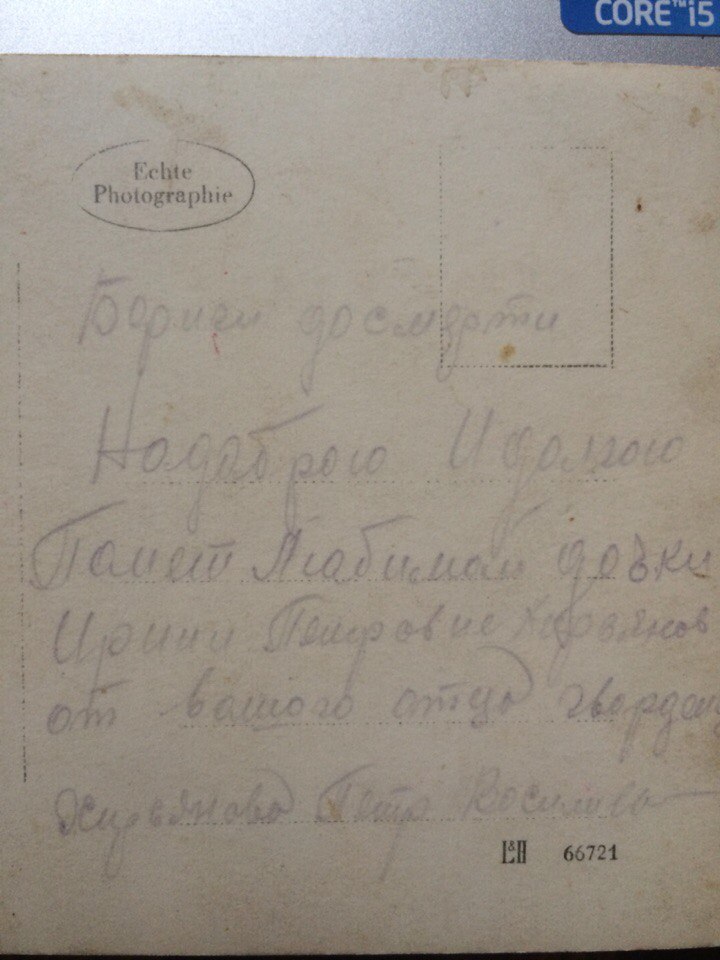 CORE™i5
Echte
Photographie
Бериги до смерти
На доброю И долгою
Памет Любимай дочки
Ирини Петровне Хирьянов
от вашого отца гвардеи
Хирьянова Петр Василив
L&H 66721